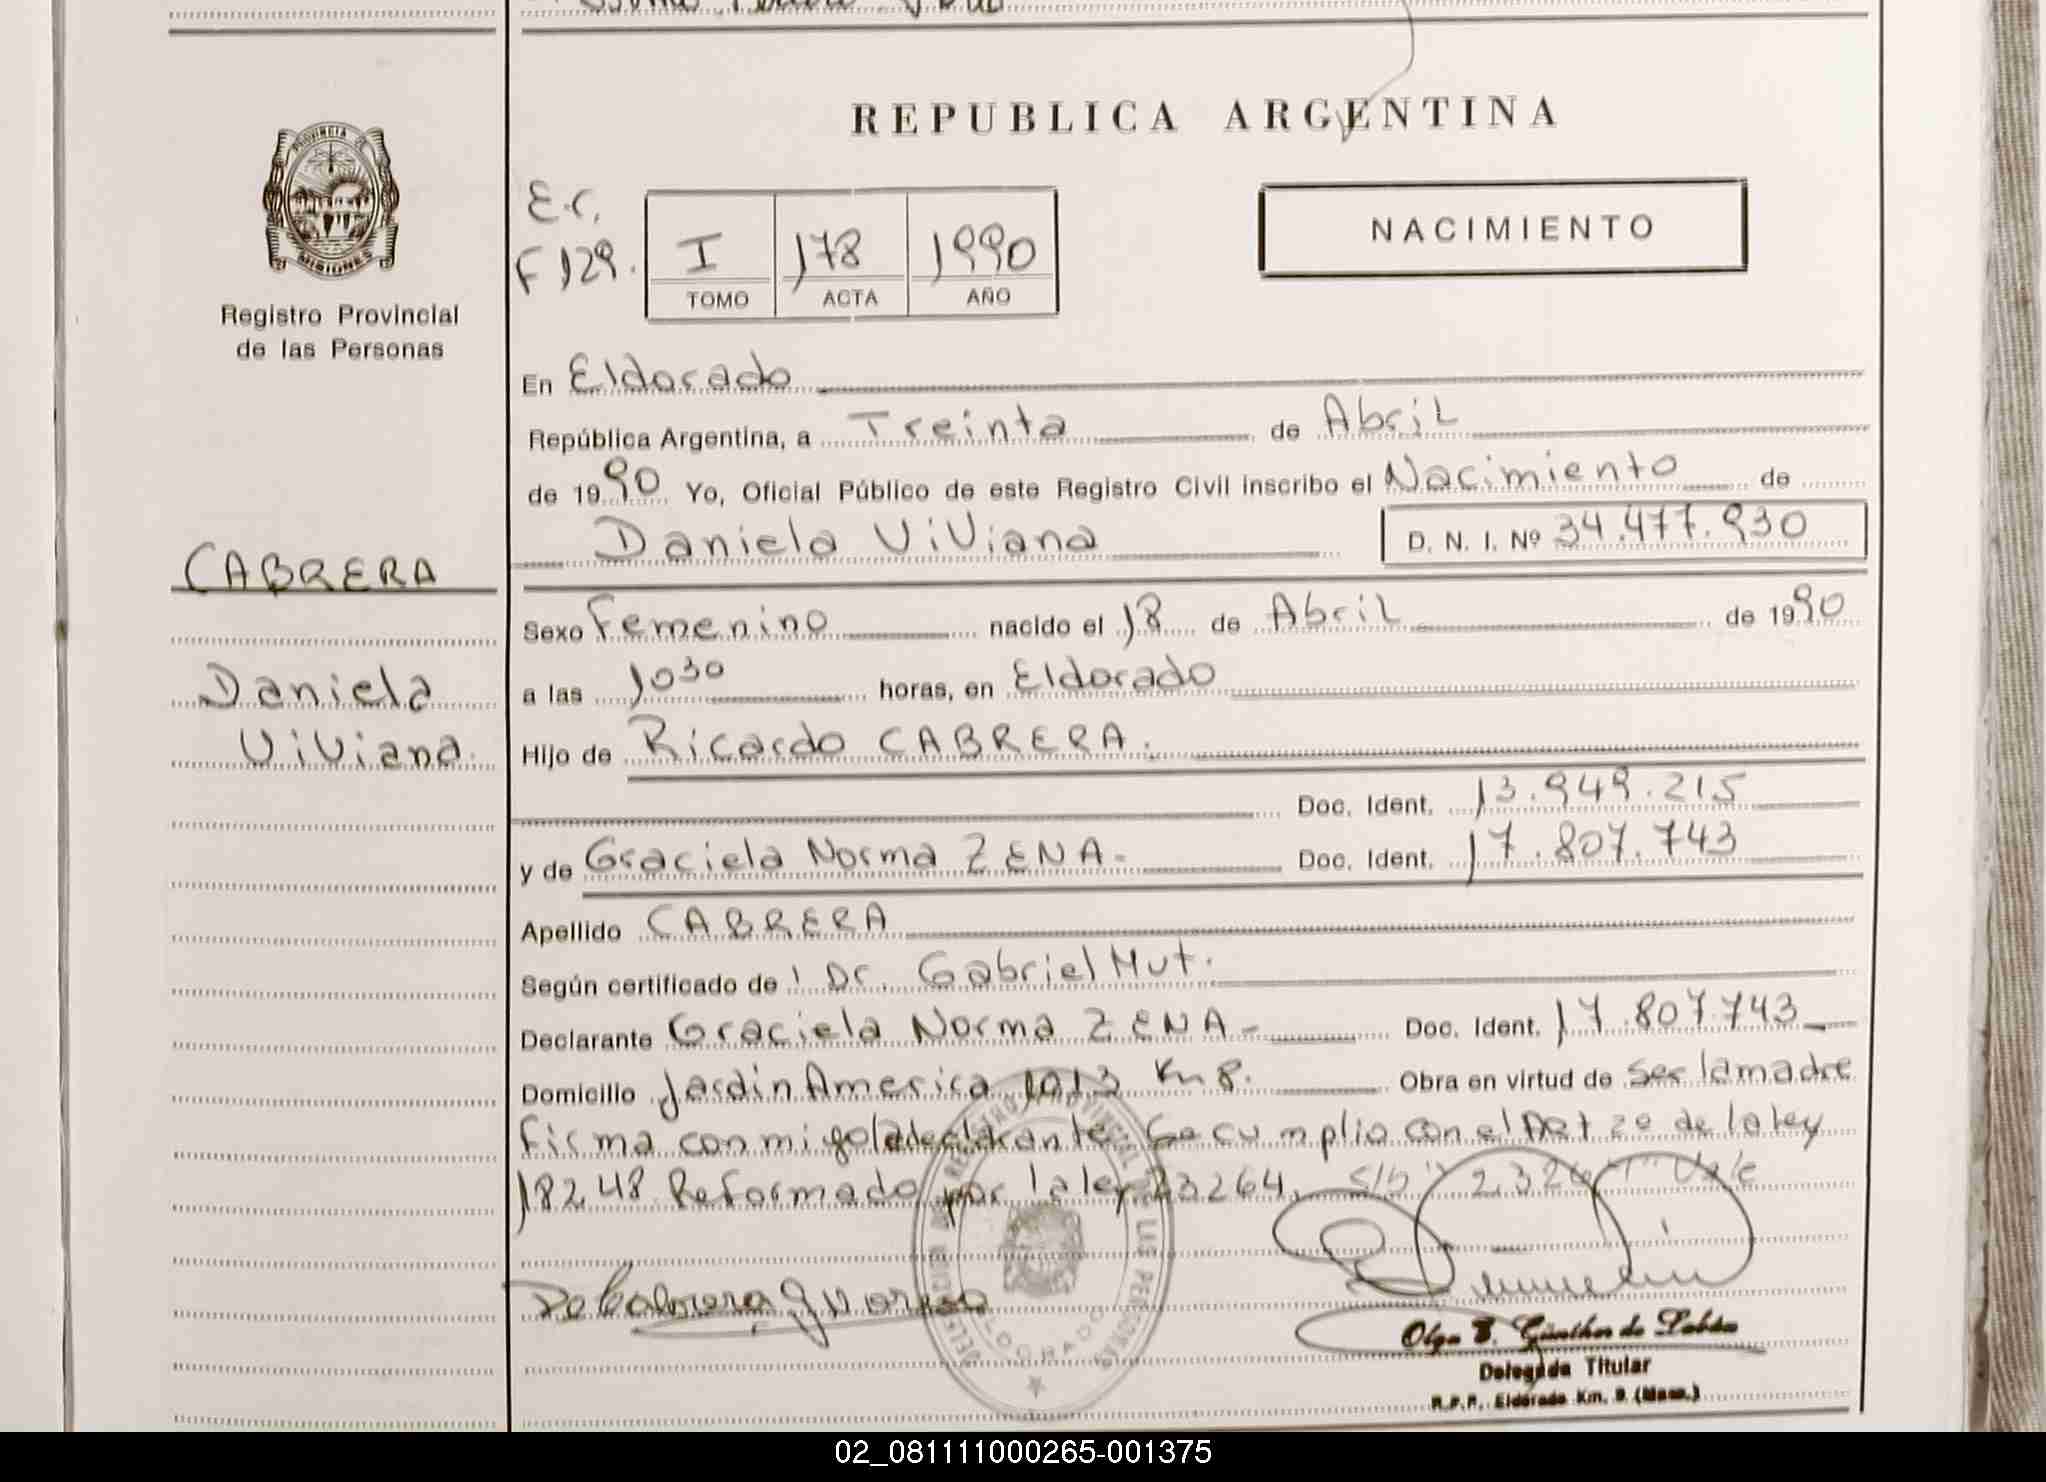 REPUBLICA ARGENTINA
PROVINCIA DE MISIONES
Registro Provincial
de las Personas
E.C.
F 129.
I 178 1990
TOMO ACTA AÑO
NACIMIENTO
En Eldorado
República Argentina, a Treinta de Abril
de 1990 Yo, Oficial Público de este Registro Civil inscribo el Nacimiento de
Daniela ViViana D. N. I. Nº 34.477.930
CABRERA
Daniela
ViViana
Sexo Femenino nacido el 18 de Abril de 1990
a las 1030 horas, en Eldorado
Hijo de Ricardo CABRERA.
Doc. Ident. 13.949.215
y de Graciela Norma ZENA- Doc. Ident. 17.807.743
Apellido CABRERA
Según certificado de Dr. Gabriel Mut.
Declarante Graciela Norma ZENA- Doc. Ident. 17.807.743
Domicilio Jardin America 1013 Km 8. Obra en virtud de Ser la madre
Firma conmigo la declarante. Se cumplio con el Art 20 de la ley
18248 Reformado por la ley 23264. S/b "23264" Vale
ELDORADO
Delegada Titular
R.P.P. Eldorado Km. 9 (Mnes.)
02_081111000265-001375